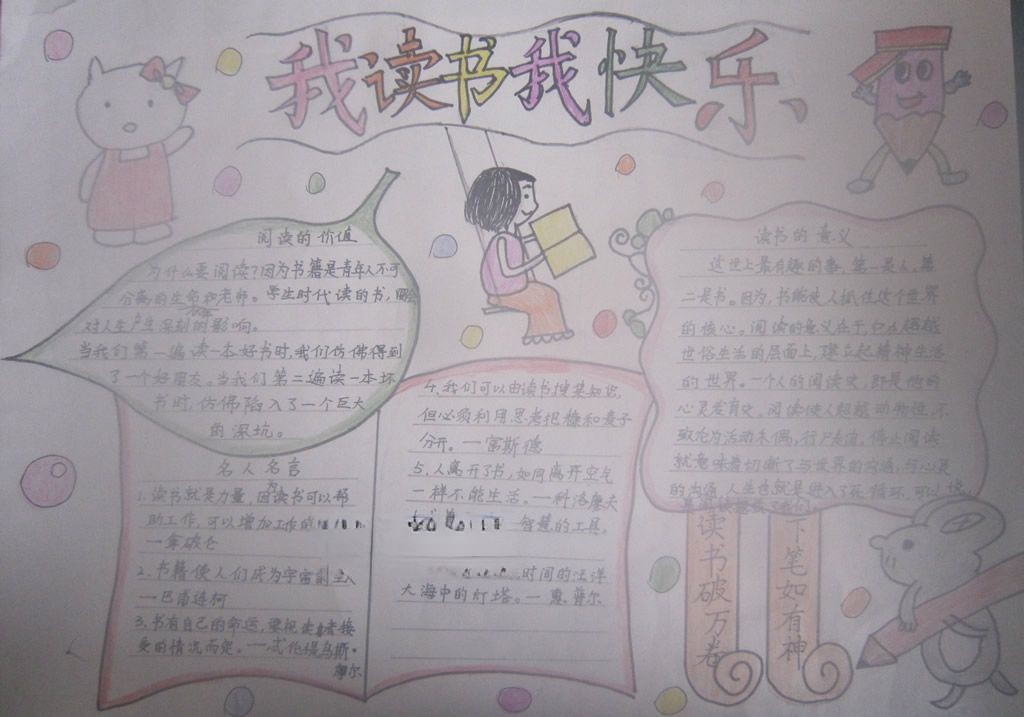 我读书我快乐
阅读的价值
为什么要阅读？因为书籍是青年人不可
分离的生命和老师。学生时代读的书，
对人生产生深刻的影响。
当我们第一遍读一本好书时，我们仿佛得到
了一个好朋友。当我们第二遍读一本坏
书时，仿佛陷入了一个巨大
的深坑。
名人名言
1.读书就是力量，因为读书可以帮
助工作，可以增加工作的
一拿破仑
2.书籍使人们成为宇宙
一巴甫连柯
3.书有自己的命运，要视读者接
受的情况而定。一忒伦提乌斯·
摩尔
4.我们可以由读书搜集知识，
但必须利用思考把糠和麦子
分开。一富斯德
5.人离开了书，如同离开空气
一样不能生活。一科洛廖夫
智慧的工具。
时间的汪洋
大海中的灯塔。一惠普尔
读书的意义
这世上最有趣的事，第一是人，第
二是书。因为，书能使人抓住这个世界
的核心。阅读的意义在于，它在超越
世俗生活的层面上，建立起精神生活
的世界。一个人的阅读史，即是他的
心灵发育史。阅读使人超越动物性，不
致沦为活动木偶，行尸走肉。停止阅读
就意味着切断了与世界的沟通，与心灵
的沟通，人生也就是进入了死循环，可以
读书破万卷
下笔如有神